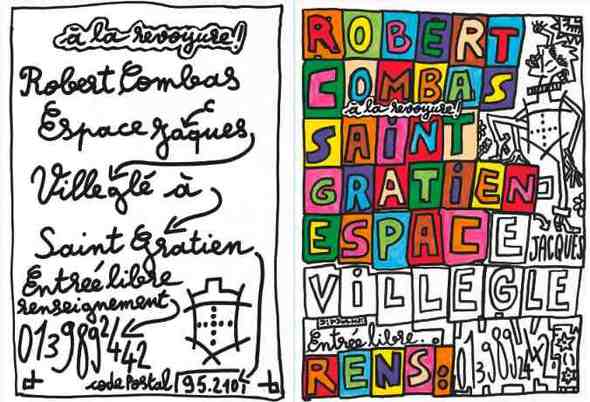 à la revoyure!
Robert Combas
Espace Jaques
Villeglé à
Saint Gratien
Entrée libre
renseignement
0139892442
code Postal 95.210
ROBERT
COMBAS
à la revoyure!
SAINT
GRATIEN
ESPACE
JACQUES
VILLEGLE
Entrée libre..
RENS: 0139892442